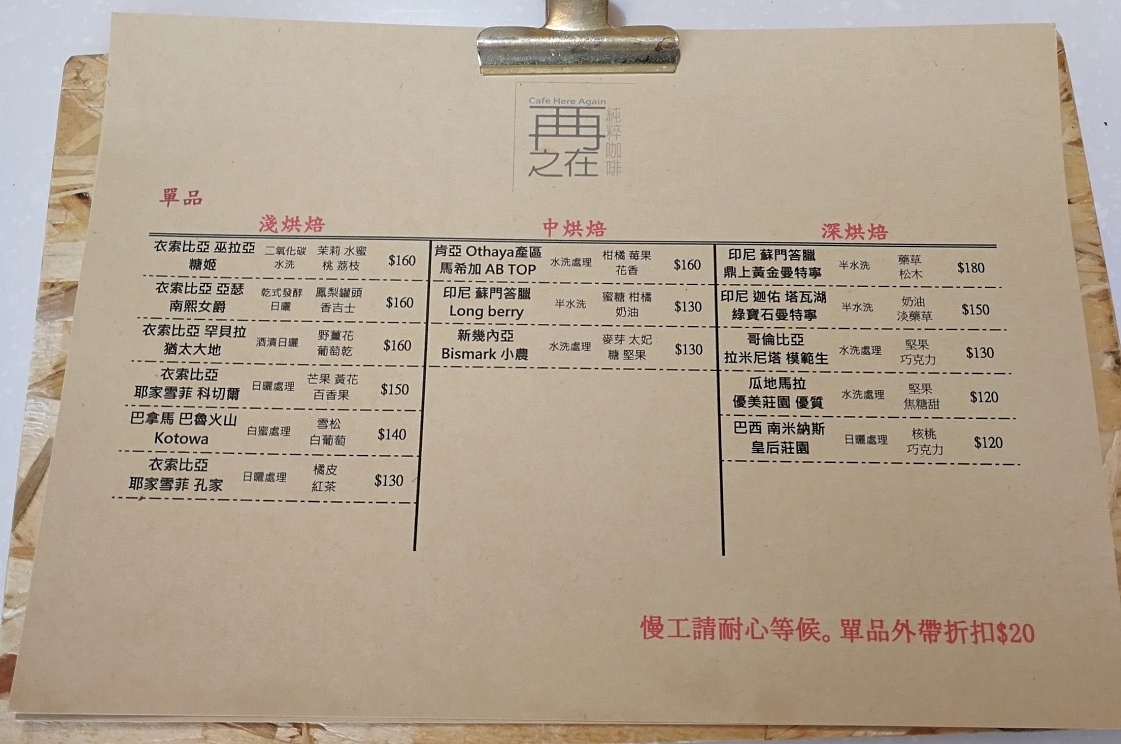 Cafe Here Again
再
之在
純粹咖啡
單品
淺烘焙
衣索比亞 巫拉亞
糖姬
二氧化碳
水洗
茉莉 水蜜
桃 荔枝
$160
衣索比亞 亞瑟
南熙女爵
乾式發酵
日曬
鳳梨罐頭
香吉士
$160
衣索比亞 罕貝拉
猶太大地
酒漬日曬
野薑花
葡萄乾
$160
衣索比亞
耶家雪菲 科切爾
日曬處理
芒果 黃花
百香果
$150
巴拿馬 巴魯火山
Kotowa
白蜜處理
雪松
白葡萄
$140
衣索比亞
耶家雪菲 孔家
日曬處理
橘皮
紅茶
$130
中烘焙
肯亞 Othaya產區
馬希加 AB TOP
水洗處理
柑橘 莓果
花香
$160
印尼 蘇門答臘
Long berry
半水洗
蜜糖 柑橘
奶油
$130
新幾內亞
Bismark 小農
水洗處理
麥芽 太妃
糖 堅果
$130
深烘焙
印尼 蘇門答臘
鼎上黃金曼特寧
半水洗
藥草
松木
$180
印尼 迦佑 塔瓦湖
綠寶石曼特寧
半水洗
奶油
淡藥草
$150
哥倫比亞
拉米尼塔 模範生
水洗處理
堅果
巧克力
$130
瓜地馬拉
優美莊園 優質
水洗處理
堅果
焦糖甜
$120
巴西 南米納斯
皇后莊園
日曬處理
核桃
巧克力
$120
慢工請耐心等候。單品外帶折扣$20